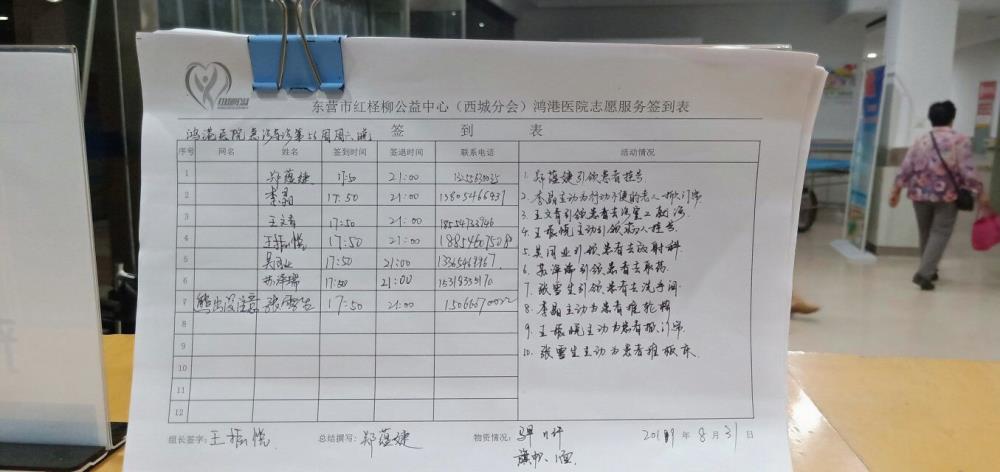 东营市红柽柳公益中心（西城分会）鸿港医院志愿服务签到表
鸿港医院 第56周周六晚
签 到 表
序号 网名 姓名 签到时间 签退时间 联系电话 活动情况
1 郑蕴婕 17:50 21:00
2 李晶 17:50 21:00 13805466931
3 王文青 17:50 21:00 18554733946
4 王振悦 17:50 21:00 18854607508
5 吴同业 17:50 21:00 13365469967
6 苏泽瑞 17:50 21:00
7 熊出没注意 张雪生 17:50 21:00
8
9
10
11
12
1. 郑蕴婕引领患者挂号
2. 李晶主动为行动不便的老人掀门帘
3. 王文青引领患者去
4. 王振悦主动引领病人挂号
5. 吴同业引领患者去放射科
6. 苏泽瑞引领患者去取药
7. 张雪生引领患者去洗手间
8. 李晶主动为患者推轮椅
9. 王振悦主动为患者掀门帘
10. 张雪生主动为患者推板床
组长签字: 王振悦 总结撰写: 郑蕴婕 物资情况:
2019 年 8 月 31 日